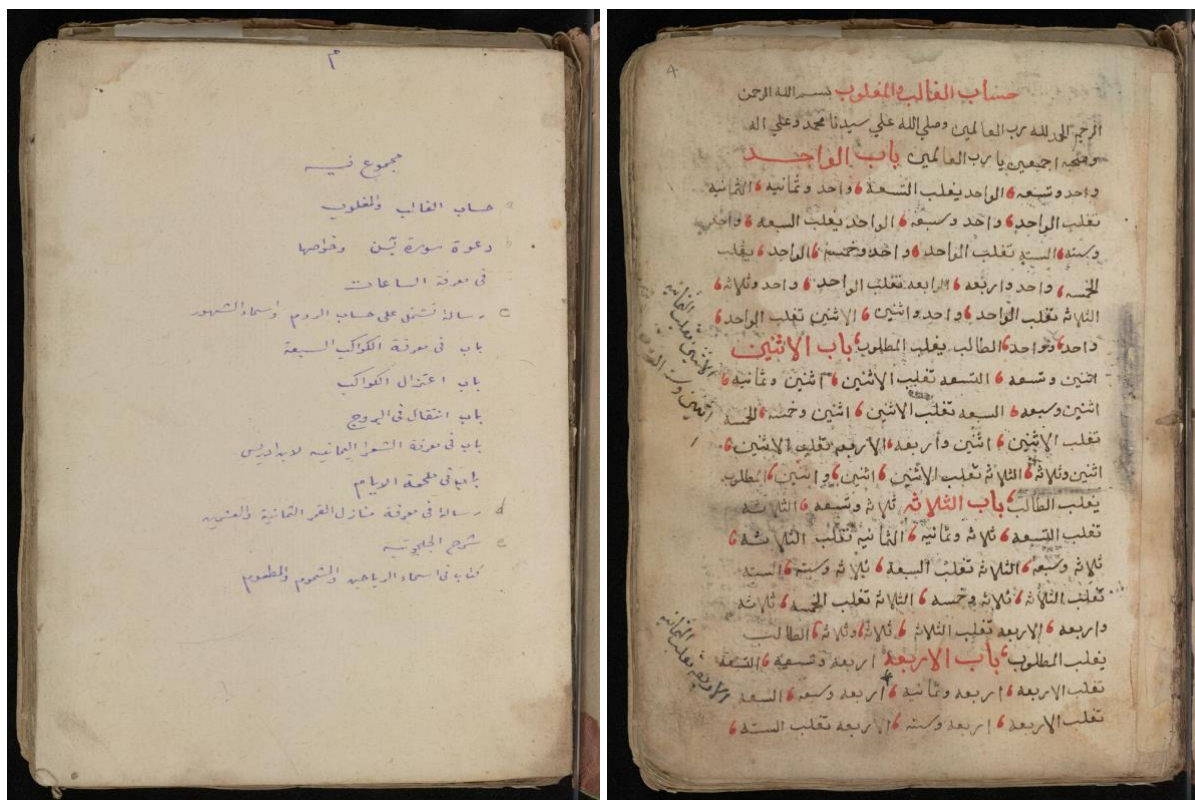 م
مجموع فيه
حساب الغالب والمغلوب
دعوة سورة يٓسٓ وخواصها
فى معرفة الساعات
رسالة تشتمل على حساب الروم واسماء الشهور
باب فى معرفة الكواكب السبعة
باب اعتزال الكواكب
باب انتقال فى البروج
باب فى معرفة الشعرا اليمانيه لابن ادريس
باب فى ملحمة الايام
رسالة فى معرفة منازل القمر الثمانية والعشرين
شرح الجلجوتيه
كتاب فى اسماء الرياحين والمشموم والمطعوم
حساب الغالب والمغلوب بسم الله الرحمن
الرحيم الحمد لله رب العالمين وصلي الله علي سيدنا محمد وعلي اله
وصحبه اجمعين يا رب العالمين باب الواحد
واحد وتسعه الواحد يغلب التسعة واحد وثمانيه الثمانيه
تغلب الواحد واحد وسبعه الواحد يغلب السبعه واحد
وسته السته تغلب الواحد واحد وخمسه الواحد يغلب
الخمسه واحد واربعه الرابعه تغلب الواحد واحد وثلاثه
الثلاثه تغلب الواحد واحد واثنين الاثنين تغلب الواحد
واحد وواحد الطالب يغلب المطلوب باب الاثنين
اثنين وتسعه التسعه تغلب الاثنين اثنين وثمانيه
الاثنين تغلب الثمانيه
اثنين وسته
اثنين وسبعه السبعه تغلب الاثنين اثنين وخمسه الخمسه
تغلب الاثنين اثنين وأربعه الاربعه تغلب الاثنين
اثنين وثلاثه الثلاثه تغلب الاثنين اثنين واثنين المطلوب
يغلب الطالب باب الثلاثه ثلاثه وتسعه الثلاثه
تغلب التسعه ثلاثه وثمانيه الثمانيه تغلب الثلاثه
ثلاثه وسبعه الثلاثه تغلب السبعة ثلاثه وسته السته
تغلب الثلاثه ثلاثه وخمسه الثلاثه تغلب الخمسه ثلاثه
واربعه الاربعه تغلب الثلاثه ثلاثه وثلاثه الطالب
يغلب المطلوب باب الاربعه اربعه وتسعيه التسعه
تغلب الاربعه اربعه وثمانيه اربعه وسبعه السبعه
الاربعه يغلب الثمانيه
تغلب الاربعه اربعه وسته الاربعه تغلب السته